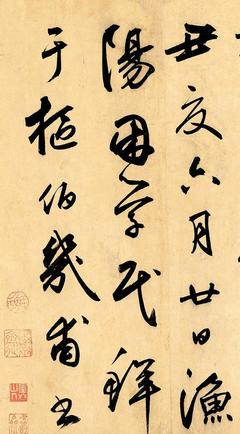 丑夏六月廿日漁
陽困學民鮮
于樞伯幾甫書